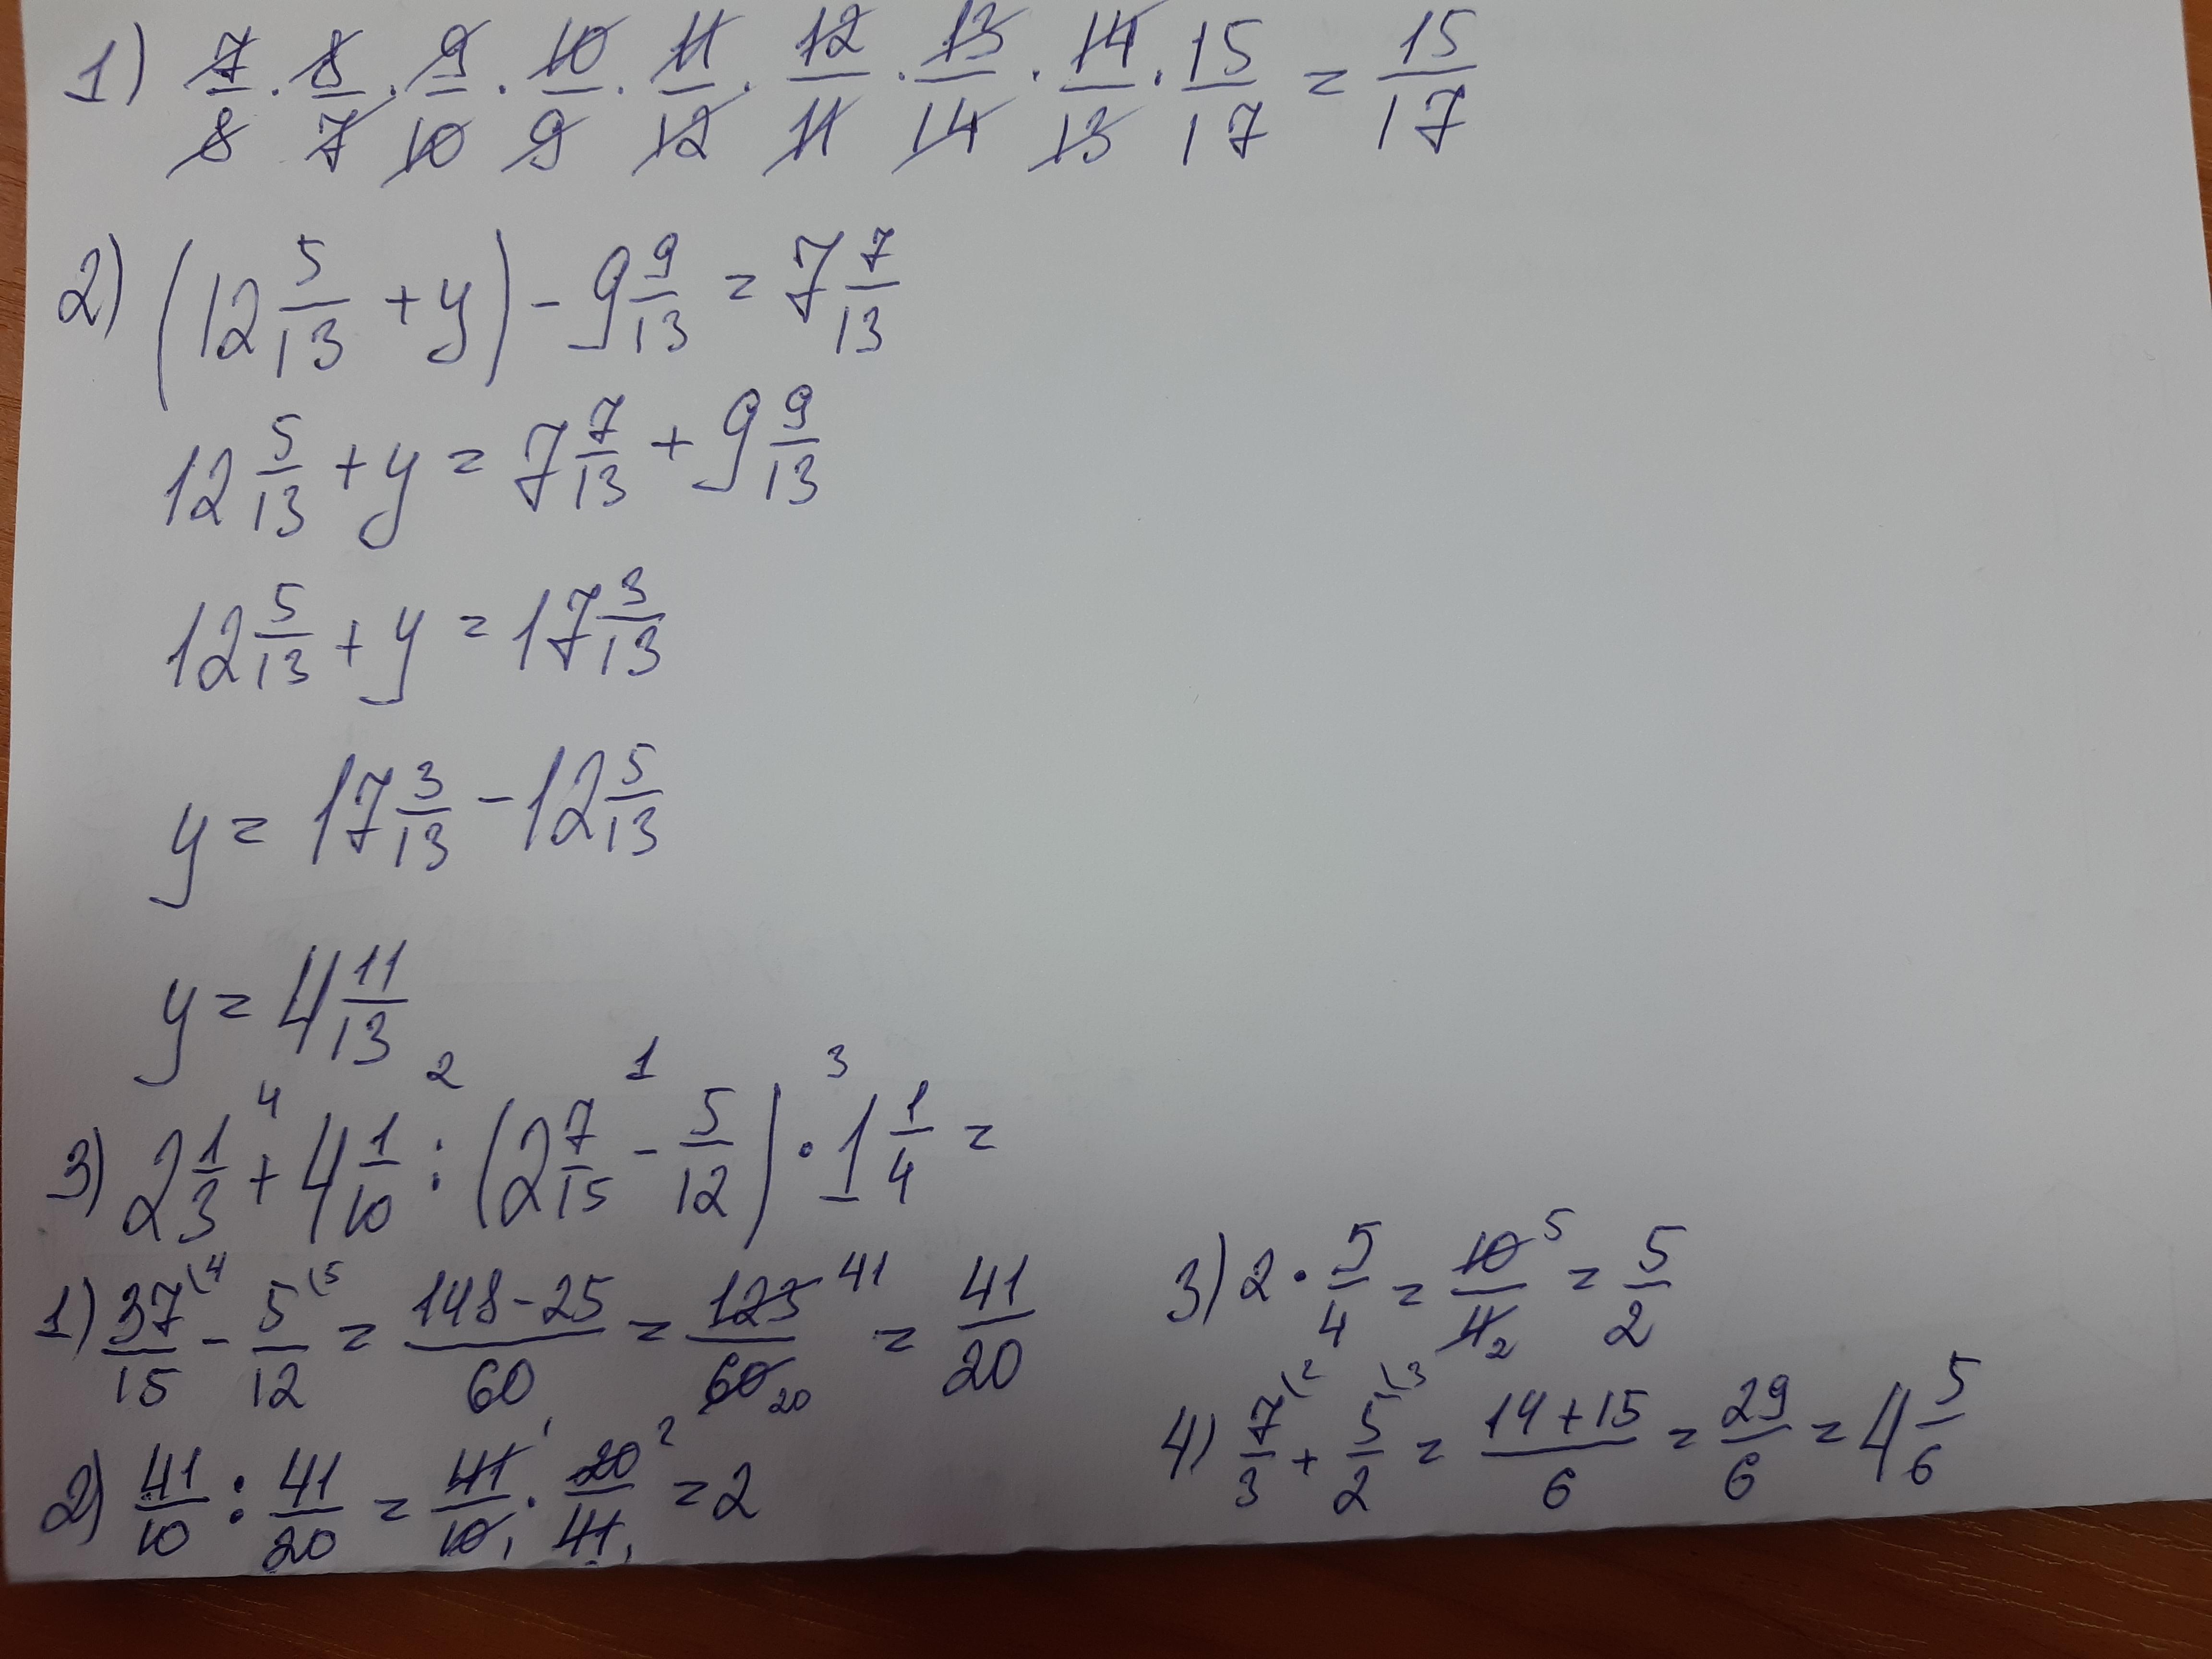 1) 7/8 · 8/7 · 9/10 · 10/9 · 11/12 · 12/11 · 13/14 · 14/13 · 15/17 = 15/17
2) (12 5/13 + y) - 9 9/13 = 7 7/13
12 5/13 + y = 7 7/13 + 9 9/13
12 5/13 + y = 17 3/13
y = 17 3/13 - 12 5/13
y = 4 11/13
4 2 1 3
3) 2 1/3 + 4 1/10 : (2 7/15 - 5/12) · 1 1/4 =
1) 37/15 \4 - 5/12 \5 = 148-25/60 = 123/60 41 20 = 41/20
2) 41/10 : 41/20 = 41/10 1 1 · 20/41 2 1 = 2
3) 2 · 5/4 = 10/4 5 2 = 5/2
4) 7/3 \2 + 5/2 \3 = 14+15/6 = 29/6 = 4 5/6